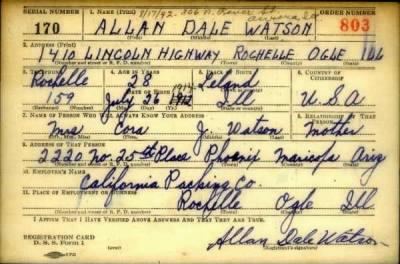 SERIAL NUMBER 1. NAME (Print) ORDER NUMBER
170 ALLAN DALE WATSON 803
(First) (Middle) (Last)
2. ADDRESS (Print)
1410 LINCOLN HIGHWAY ROCHELLE OGLE ILL
(Number and street or R. F. D. number) (Town) (County) (State)
3. TELEPHONE 4. AGE IN YEARS 5. PLACE OF BIRTH 6. COUNTRY OF CITIZENSHIP
Rochelle 28 Leland
DATE OF BIRTH
159 July 1912 Ill U.S.A
(Exchange) (Number) (Mo.) (Day) (Yr.) (State or country)
7. NAME OF PERSON WHO WILL ALWAYS KNOW YOUR ADDRESS 8. RELATIONSHIP OF THAT PERSON
Mrs Cora J. Watson Mother
(Mr., Mrs., Miss) (First) (Middle) (Last)
9. ADDRESS OF THAT PERSON
2220 No. Place Phoenix Maricopa Ariz
(Number and street or R. F. D. number) (Town) (County) (State)
10. EMPLOYER'S NAME
California Packing Co.
11. PLACE OF EMPLOYMENT OR BUSINESS
Rochelle Ogle Ill
(Number and street or R. F. D. number) (Town) (County) (State)
I AFFIRM THAT I HAVE VERIFIED ABOVE ANSWERS AND THAT THEY ARE TRUE.
REGISTRATION CARD
D. S. S. Form 1
Allan Dale Watson